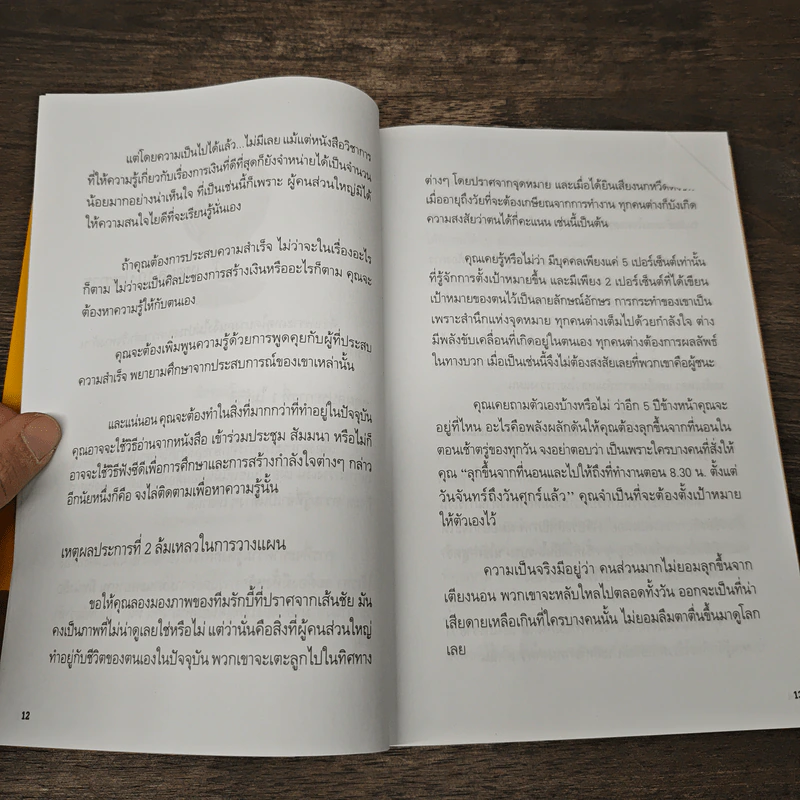 แต่โดยความเป็นไปได้แล้ว...ไม่มีเลย แม้แต่หนังสือวิชาการ
ที่ให้ความรู้เกี่ยวกับเรื่องการเงินที่ดีที่สุดก็ยังจำหน่ายได้เป็นจำนวน
น้อยมากอย่างน่าเห็นใจ ที่เป็นเช่นนี้ก็เพราะ ผู้คนส่วนใหญ่มิได้
ให้ความสนใจไยดีที่จะเรียนรู้นั่นเอง
ถ้าคุณต้องการประสบความสำเร็จ ไม่ว่าจะในเรื่องอะไร
ก็ตาม ไม่ว่าจะเป็นศิลปะของการสร้างเงินหรืออะไรก็ตาม คุณจะ
ต้องหาความรู้ให้กับตนเอง
คุณจะต้องเพิ่มพูนความรู้ด้วยการพูดคุยกับผู้ที่ประสบ
ความสำเร็จ พยายามศึกษาจากประสบการณ์ของเขาเหล่านั้น
และแน่นอน คุณจะต้องทำในสิ่งที่มากกว่าที่ทำอยู่ในปัจจุบัน
คุณอาจจะใช้วิธีอ่านจากหนังสือ เข้าร่วมประชุม สัมมนา หรือไม่ก็
อาจจะใช้วิธีฟังซีดีเพื่อการศึกษาและการสร้างกำลังใจต่างๆ กล่าว
อีกนัยหนึ่งก็คือ จงไล่ติดตามเพื่อหาความรู้นั้น
เหตุผลประการที่ 2 ล้มเหลวในการวางแผน
ขอให้คุณลองมองภาพของทีมรักบี้ที่ปราศจากเส้นชัย มัน
คงเป็นภาพที่ไม่น่าดูเลยใช่หรือไม่ แต่ว่านั่นคือสิ่งที่ผู้คนส่วนใหญ่
ทำอยู่กับชีวิตของตนเองในปัจจุบัน พวกเขาจะเตะลูกไปในทิศทาง
12
ต่างๆ โดยปราศจากจุดหมาย และเมื่อได้ยินเสียงนกหวีด
เมื่ออายุถึงวัยที่จะต้องเกษียณจากการทำงาน ทุกคนต่างก็บังเกิด
ความสงสัยว่าตนได้กี่คะแนน เช่นนี้เป็นต้น
คุณเคยรู้หรือไม่ว่า มีบุคคลเพียงแค่ 5 เปอร์เซ็นต์เท่านั้น
ที่รู้จักการตั้งเป้าหมายขึ้น และมีเพียง 2 เปอร์เซ็นต์ที่ได้เขียน
เป้าหมายของตนไว้เป็นลายลักษณ์อักษร การกระทำของเขาเป็น
เพราะสำนึกแห่งจุดหมาย ทุกคนต่างเต็มไปด้วยกำลังใจ ต่าง
มีพลังขับเคลื่อนที่เกิดอยู่ในตนเอง ทุกคนต่างต้องการผลลัพธ์
ในทางบวก เมื่อเป็นเช่นนี้จึงไม่ต้องสงสัยเลยที่พวกเขาคือผู้ชนะ
คุณเคยถามตัวเองบ้างหรือไม่ ว่าอีก 5 ปีข้างหน้าคุณจะ
อยู่ที่ไหน อะไรคือพลังผลักดันให้คุณต้องลุกขึ้นจากที่นอนใน
ตอนเช้าตรู่ของทุกวัน จงอย่าตอบว่า เป็นเพราะใครบางคนที่สั่งให้
คุณ “ลุกขึ้นจากที่นอนและไปให้ถึงที่ทำงานตอน 8.30 น. ตั้งแต่
วันจันทร์ถึงวันศุกร์แล้ว” คุณจำเป็นที่จะต้องตั้งเป้าหมาย
ให้ตัวเองไว้
ความเป็นจริงมีอยู่ว่า คนส่วนมากไม่ยอมลุกขึ้นจาก
เตียงนอน พวกเขาจะหลับใหลไปตลอดทั้งวัน ออกจะเป็นที่น่า
เสียดายเหลือเกินที่ใครบางคนนั้น ไม่ยอมลืมตาตื่นขึ้นมาดูโลก
เลย